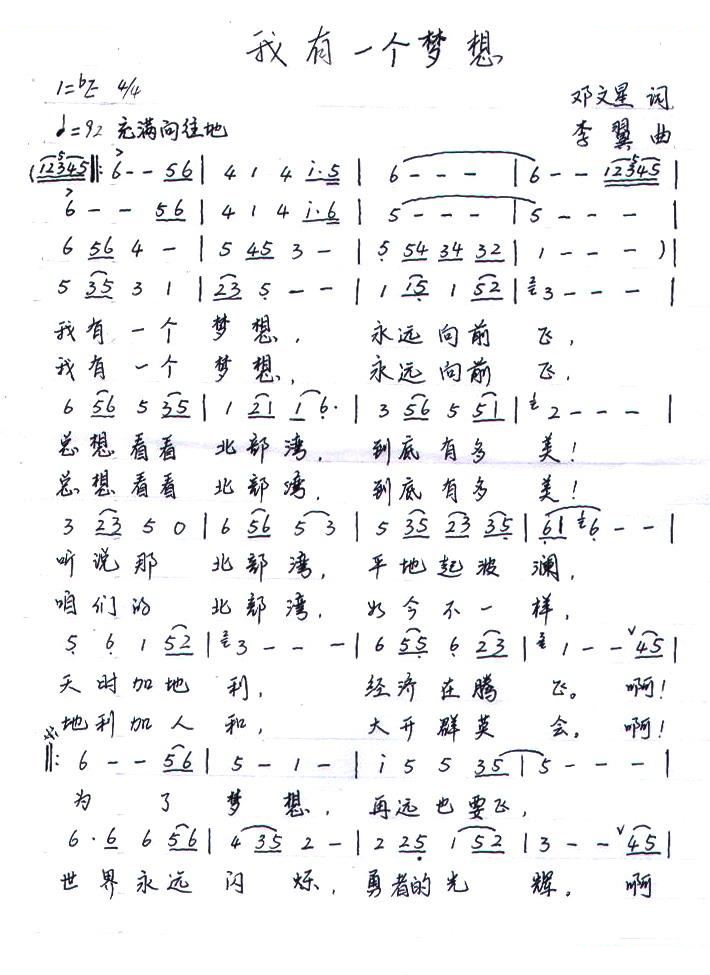 我有一个梦想
1=bE 4/4
邓文星 词
♩=92 充满向往地
李翼 曲
(12345 ‖: 6 - - 56 | 4 1 4 i·5 | 6 - - - | 6 - - 12345 |
6 - - 56 | 4 1 4 i·6 | 5 - - - | 5 - - - |
6 56 4 - | 5 45 3 - | 5 54 34 32 | 1 - - - ) |
5 35 3 1 | 23 5 - - | 1 i5 1 52 | 3 - - - |
我有一个梦想, 永远向前飞,
我有一个梦想, 永远向前飞,
6 56 5 35 | 1 21 1 6· | 3 56 5 51 | 2 - - - |
总想看看北部湾, 到底有多美!
总想看看北部湾, 到底有多美!
3 23 5 0 | 6 56 5 3 | 5 35 23 35 | 61 6 - - |
听说那北部湾, 平地起波澜,
咱们的北部湾, 如今不一样,
5 6 1 52 | 3 - - - | 6 55 6 23 | 1 - - 45 |
天时加地利, 经济在腾飞。啊!
地利加人和, 大开群英会。啊!
‖: 6 - - 56 | 5 - 1 - | i 5 5 35 | 5 - - - |
为了梦想, 再远也要飞,
6·6 6 56 | 4 35 2 - | 2 25 1 52 | 3 - - 45 |
世界永远闪烁, 勇者的光辉。啊